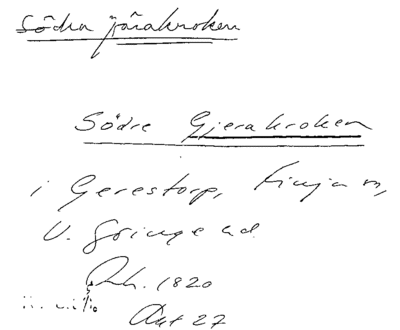 Södra järakroken
Södre Gjerakroken
i Gerestorp, Finja sn,
V. Göinge hd.
1820
Akt 27